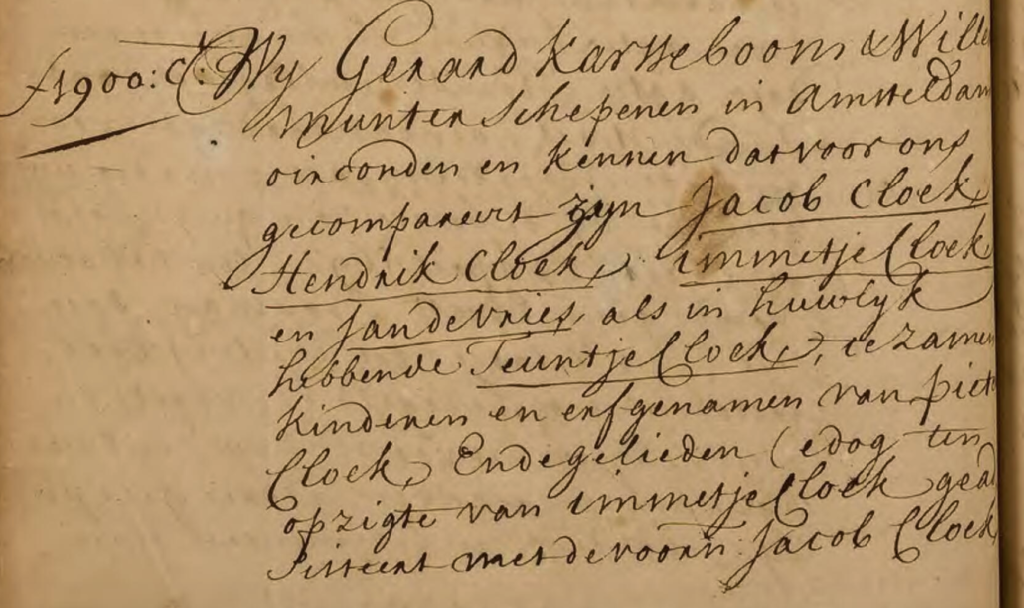 f1900: C: Wy Gerard Karsseboom & Wille
Munter Schepenen in Amsteldam
oirconden en kennen dat voor ons
gecompareert zyn Jacob Cloek,
Hendrik Cloek, immetje Cloek
en Jan de Vries, als in huwlyk
hebbende Teuntje Cloek, te zamen
kinderen en erfgenamen van piete
Cloek, Ende gelieden (edog ten
opzigte van immetje Cloek gead
sisteert met de voorn: Jacob Cloek